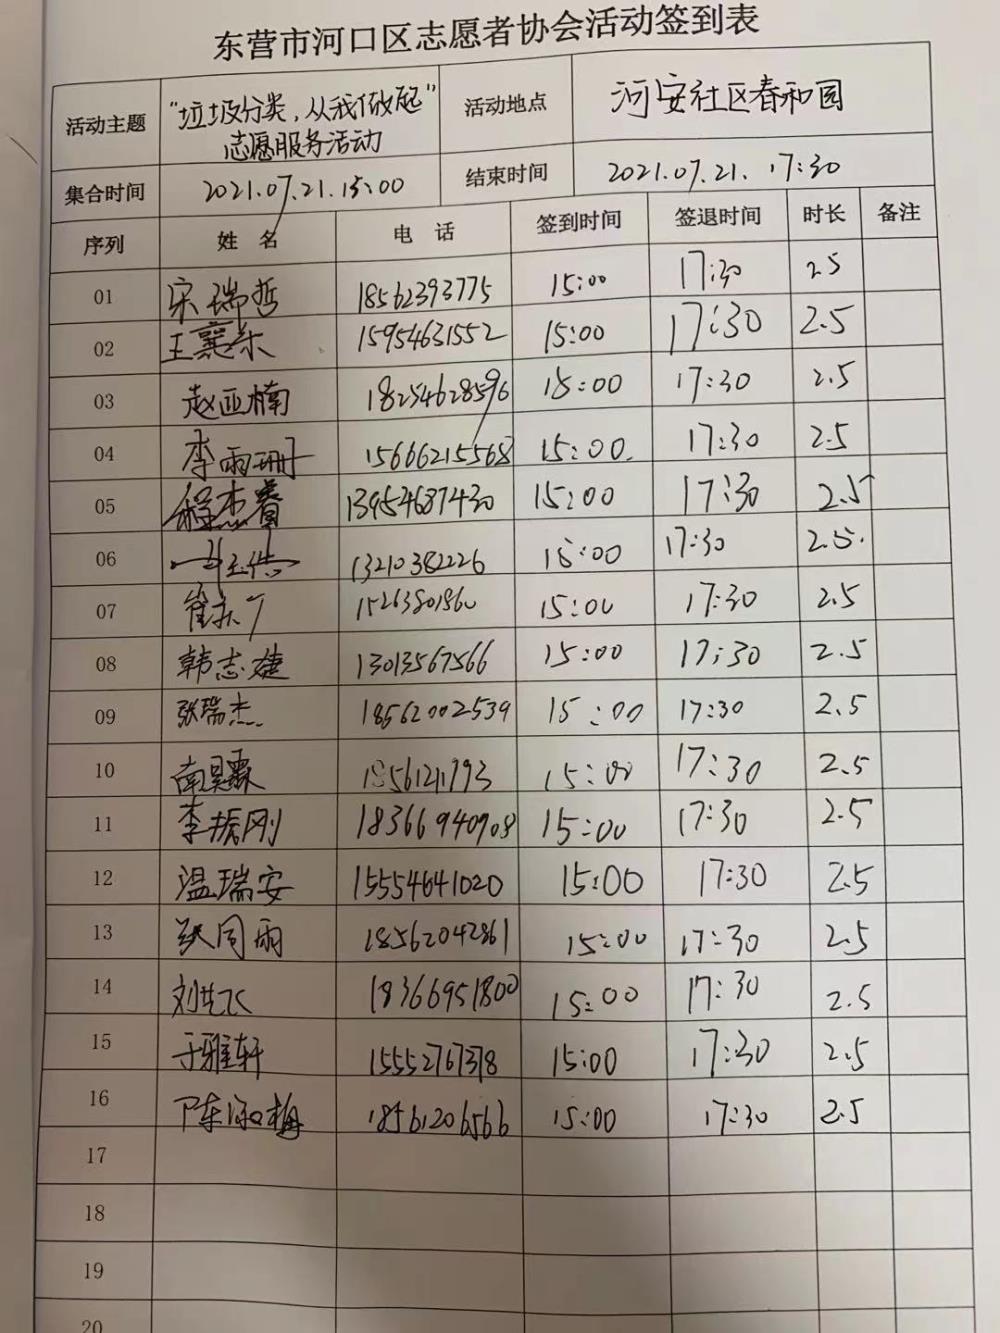 东营市河口区志愿者协会活动签到表
活动主题 "垃圾分类,从我做起" 志愿服务活动 活动地点 河安社区春和园
集合时间 2021.07.21.15:00 结束时间 2021.07.21. 17:30
序列 姓 名 电 话 签到时间 签退时间 时长 备注
01 宋瑞哲 18562393775 15:00 17:30 2.5
02 王襄东 15954631552 15:00 17:30 2.5
03 赵亚楠 18254628596 15:00 17:30 2.5
04 李雨珊 15666215568 15:00. 17:30 2.5
05 程杰睿 13954687430 15:00 17:30 2.5
06 13210382226 15:00 17:30 2.5.
07 15263801860 15:00 17:30 2.5
08 韩志婕 13013567566 15:00 17:30 2.5
09 张瑞杰 18562002539 15:00 17:30 2.5
10 南昊霖 1856121793 15:00 17:30 2.5
11 李振刚 18366940908 15:00 17:30 2.5
12 温瑞安 15554641020 15:00 17:30 2.5
13 张同雨 18562042861 15:00 17:30 2.5
14 18366951800 15:00 17:30 2.5
15 于雅轩 15552767378 15:00 17:30 2.5
16 陈淑梅 18561206566 15:00 17:30 2.5
17
18
19
20